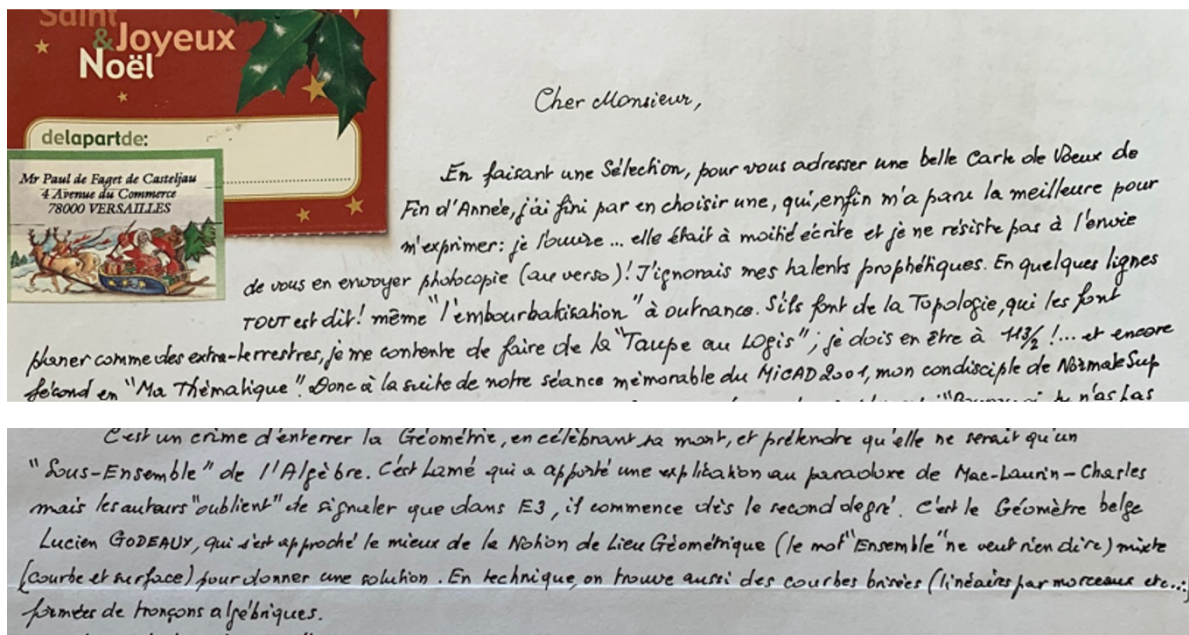 Saint
& Joyeux
Noël
delapartde:
Mr Paul de Faget de Casteljau
4 Avenue du Commerce
78000 VERSAILLES
Cher Monsieur,
En faisant une Sélection, pour vous adresser une belle Carte de Voeux de
Fin d'Année, j'ai fini par en choisir une, qui, enfin m'a paru la meilleure pour
m'exprimer: je l'ouvre ... elle était à moitié écrite et je ne résiste pas à l'envie
de vous en envoyer photocopie (au verso)! J'ignorais mes talents prophétiques. En quelques lignes
TOUT est dit! même "l'embourbakisation" à outrance. S'ils font de la Topologie, qui les font
planer comme des extra-terrestres, je me contente de faire de la "Taupe au Logis"; je dois en être à 113/2 !... et encore
fécond en "Ma Thématique". Donc à la suite de notre séance mémorable du MICAD 2001, mon condisciple de NormaleSup
tu n'as pas
C'est un crime d'enterrer la Géométrie, en célèbrant sa mort, et prétendre qu'elle ne serait qu'un
"Sous-Ensemble" de l'Algèbre. C'est Lamé qui a apporté une explication au paradoxe de Mac-Laurin-Chasles
mais les auteurs "oublient" de signaler que dans E3, il commence dès le second degré. C'est le Géomètre belge
Lucien GODEAUX, qui s'est approché le mieux de la Notion de Lieu Géométrique (le mot "Ensemble" ne veut rien dire) mixte
(courbe et surface) pour donner une solution. En technique, on trouve aussi des courbes brisées (linéaires par morceaux etc...)
formées de tronçons algébriques.